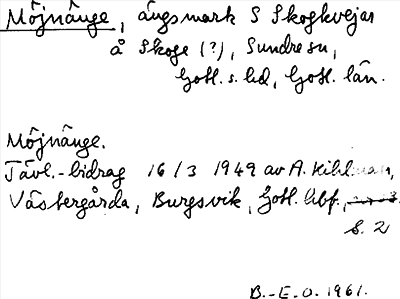 Möjnänge, ängsmark S Skogkvejar
å Skoge (?), Sundre sn,
Gotl. s. hd, Gotl. län.
Möjnänge.
Tävl.-bidrag 16/3 1949 av A. Kihlman,
Västergårda, Burgsvik, Gotl. hbf.,
s. 2
B.-E. O. 1961.